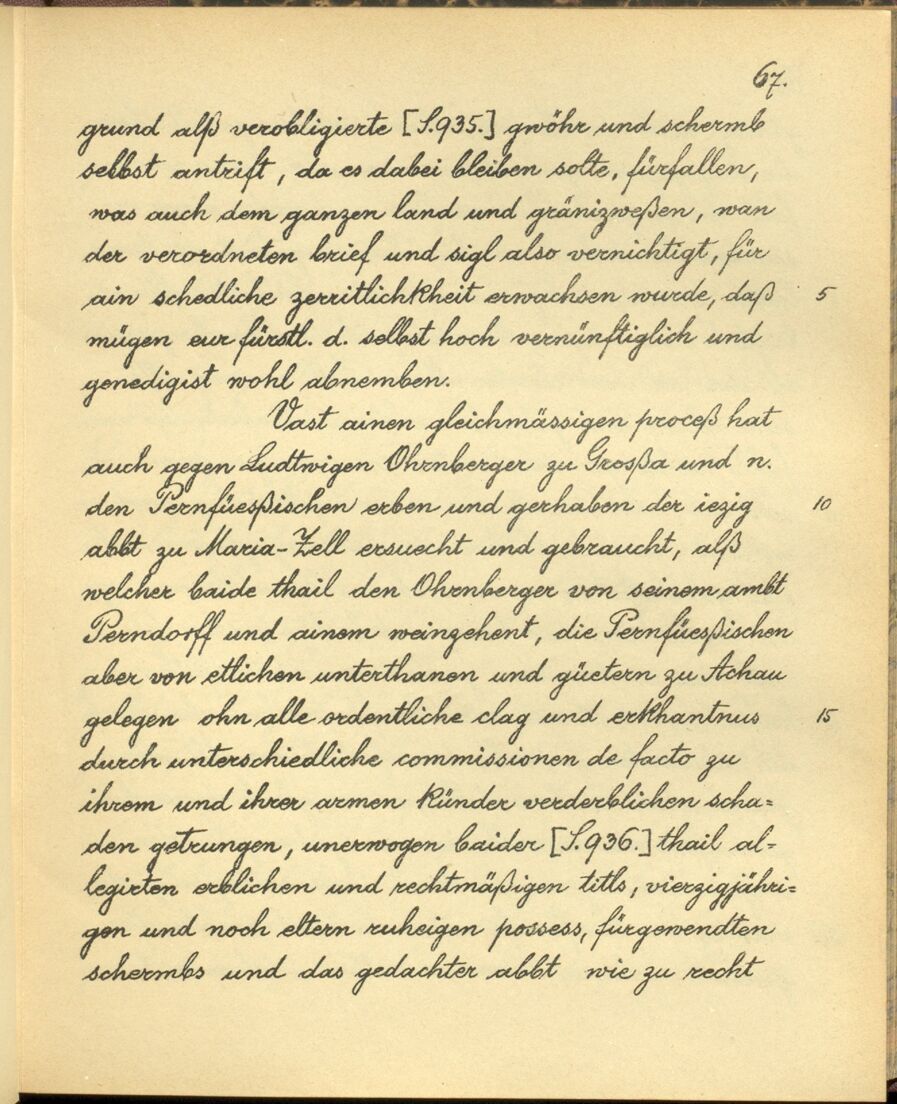 67.
grund alß verobligierte [S.935.] gwöhr und schermb
selbst antrift, da es dabei bleiben solte, fürfallen,
was auch dem ganzen land und gränizweßen, wan
der verordneten brief und sigl also vernichtigt, für
ain schedliche zerritlichkheit erwachsen wurde, daß 5
mügen eur fürstl. d. selbst hoch vernünftiglich und
genedigist wohl abnemben.
Vast ainen gleichmässigen proceß hat
auch gegen Ludtwigen Ohrnberger zu Grosßa und n.
den Pernfüesßischen erben und gerhaben der iezig 10
abbt zu Maria-Zell ersuecht und gebraucht, alß
welcher baide thail den Ohrnberger von seinem ambt
Perndorff und ainem weinzehent, die Pernfüesßischen
aber von etlichen unterthanen und güetern zu Achau
gelegen ohn alle ordentliche clag und erkhantnus 15
durch unterschiedliche commissionen de facto zu
ihrem und ihrer armen künder verderblichen scha=
den getrungen, unerwogen baider [S.936.] thail al=
legirten erblichen und rechtmäßigen titls, vierzigjähri=
gen und noch eltern ruheigen possess, fürgewendten
schermbs und das gedachter abbt wie zu recht